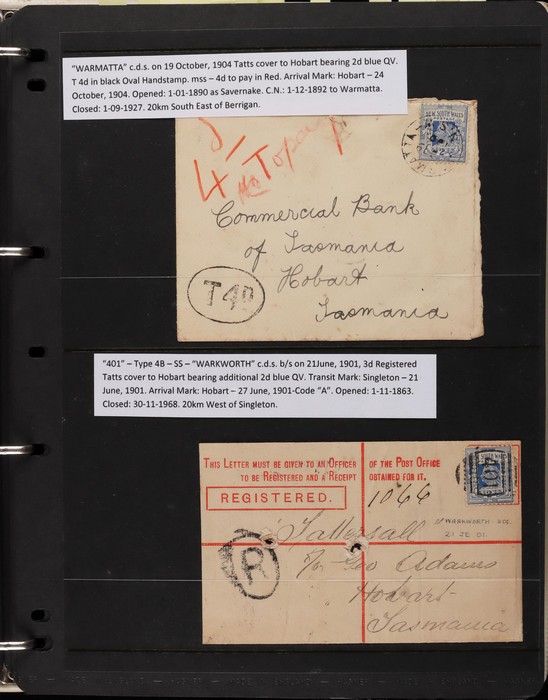 "WARMATTA" c.d.s. on 19 October, 1904 Tatts cover to Hobart bearing 2d blue QV.
T 4d in black Oval Handstamp. mss – 4d to pay in Red. Arrival Mark: Hobart – 24
October, 1904. Opened: 1-01-1890 as Savernake. C.N.: 1-12-1892 to Warmatta.
Closed: 1-09-1927. 20km South East of Berrigan.
NEW SOUTH WALES
To pay
Commercial Bank
of Tasmania
Hobart
Tasmania
T 4D
"401" – Type 4B – SS – "WARKWORTH" c.d.s. b/s on 21June, 1901, 3d Registered
Tatts cover to Hobart bearing additional 2d blue QV. Transit Mark: Singleton – 21
June, 1901. Arrival Mark: Hobart – 27 June, 1901-Code "A". Opened: 1-11-1863.
Closed: 30-11-1968. 20km West of Singleton.
THIS LETTER MUST BE GIVEN TO AN OFFICER OF THE POST OFFICE
TO BE REGISTERED AND A RECEIPT OBTAINED FOR IT.
REGISTERED.
1066
WARKWORTH
21 JE 01.
R
Tattersall
c/o Geo Adams
Hobart
Tasmania